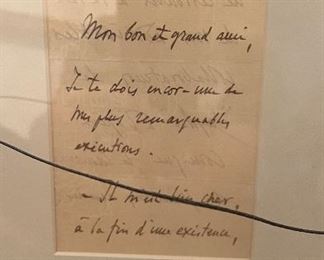 Mon bon et grand ami,
Je te dois encore une de
tes plus remarquables
exécutions.
- Il m'est bien cher,
à la fin d'une existence,